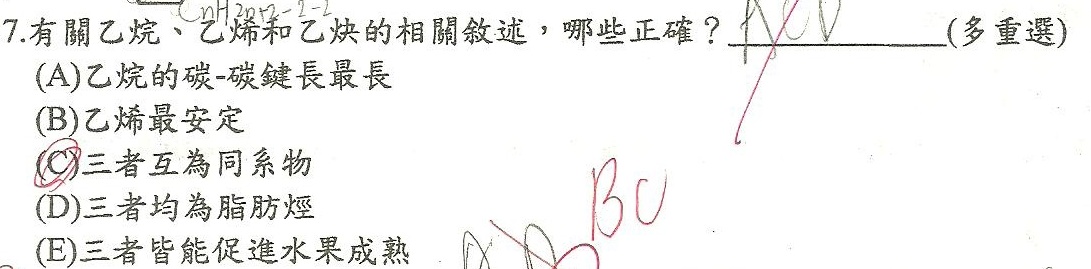 CnH2n+2-2-2
7.有關乙烷、乙烯和乙炔的相關敘述，哪些正確？ACD(多重選)
(A)乙烷的碳-碳鍵長最長
(B)乙烯最安定
(C)三者互為同系物
(D)三者均為脂肪烴
(E)三者皆能促進水果成熟
BC